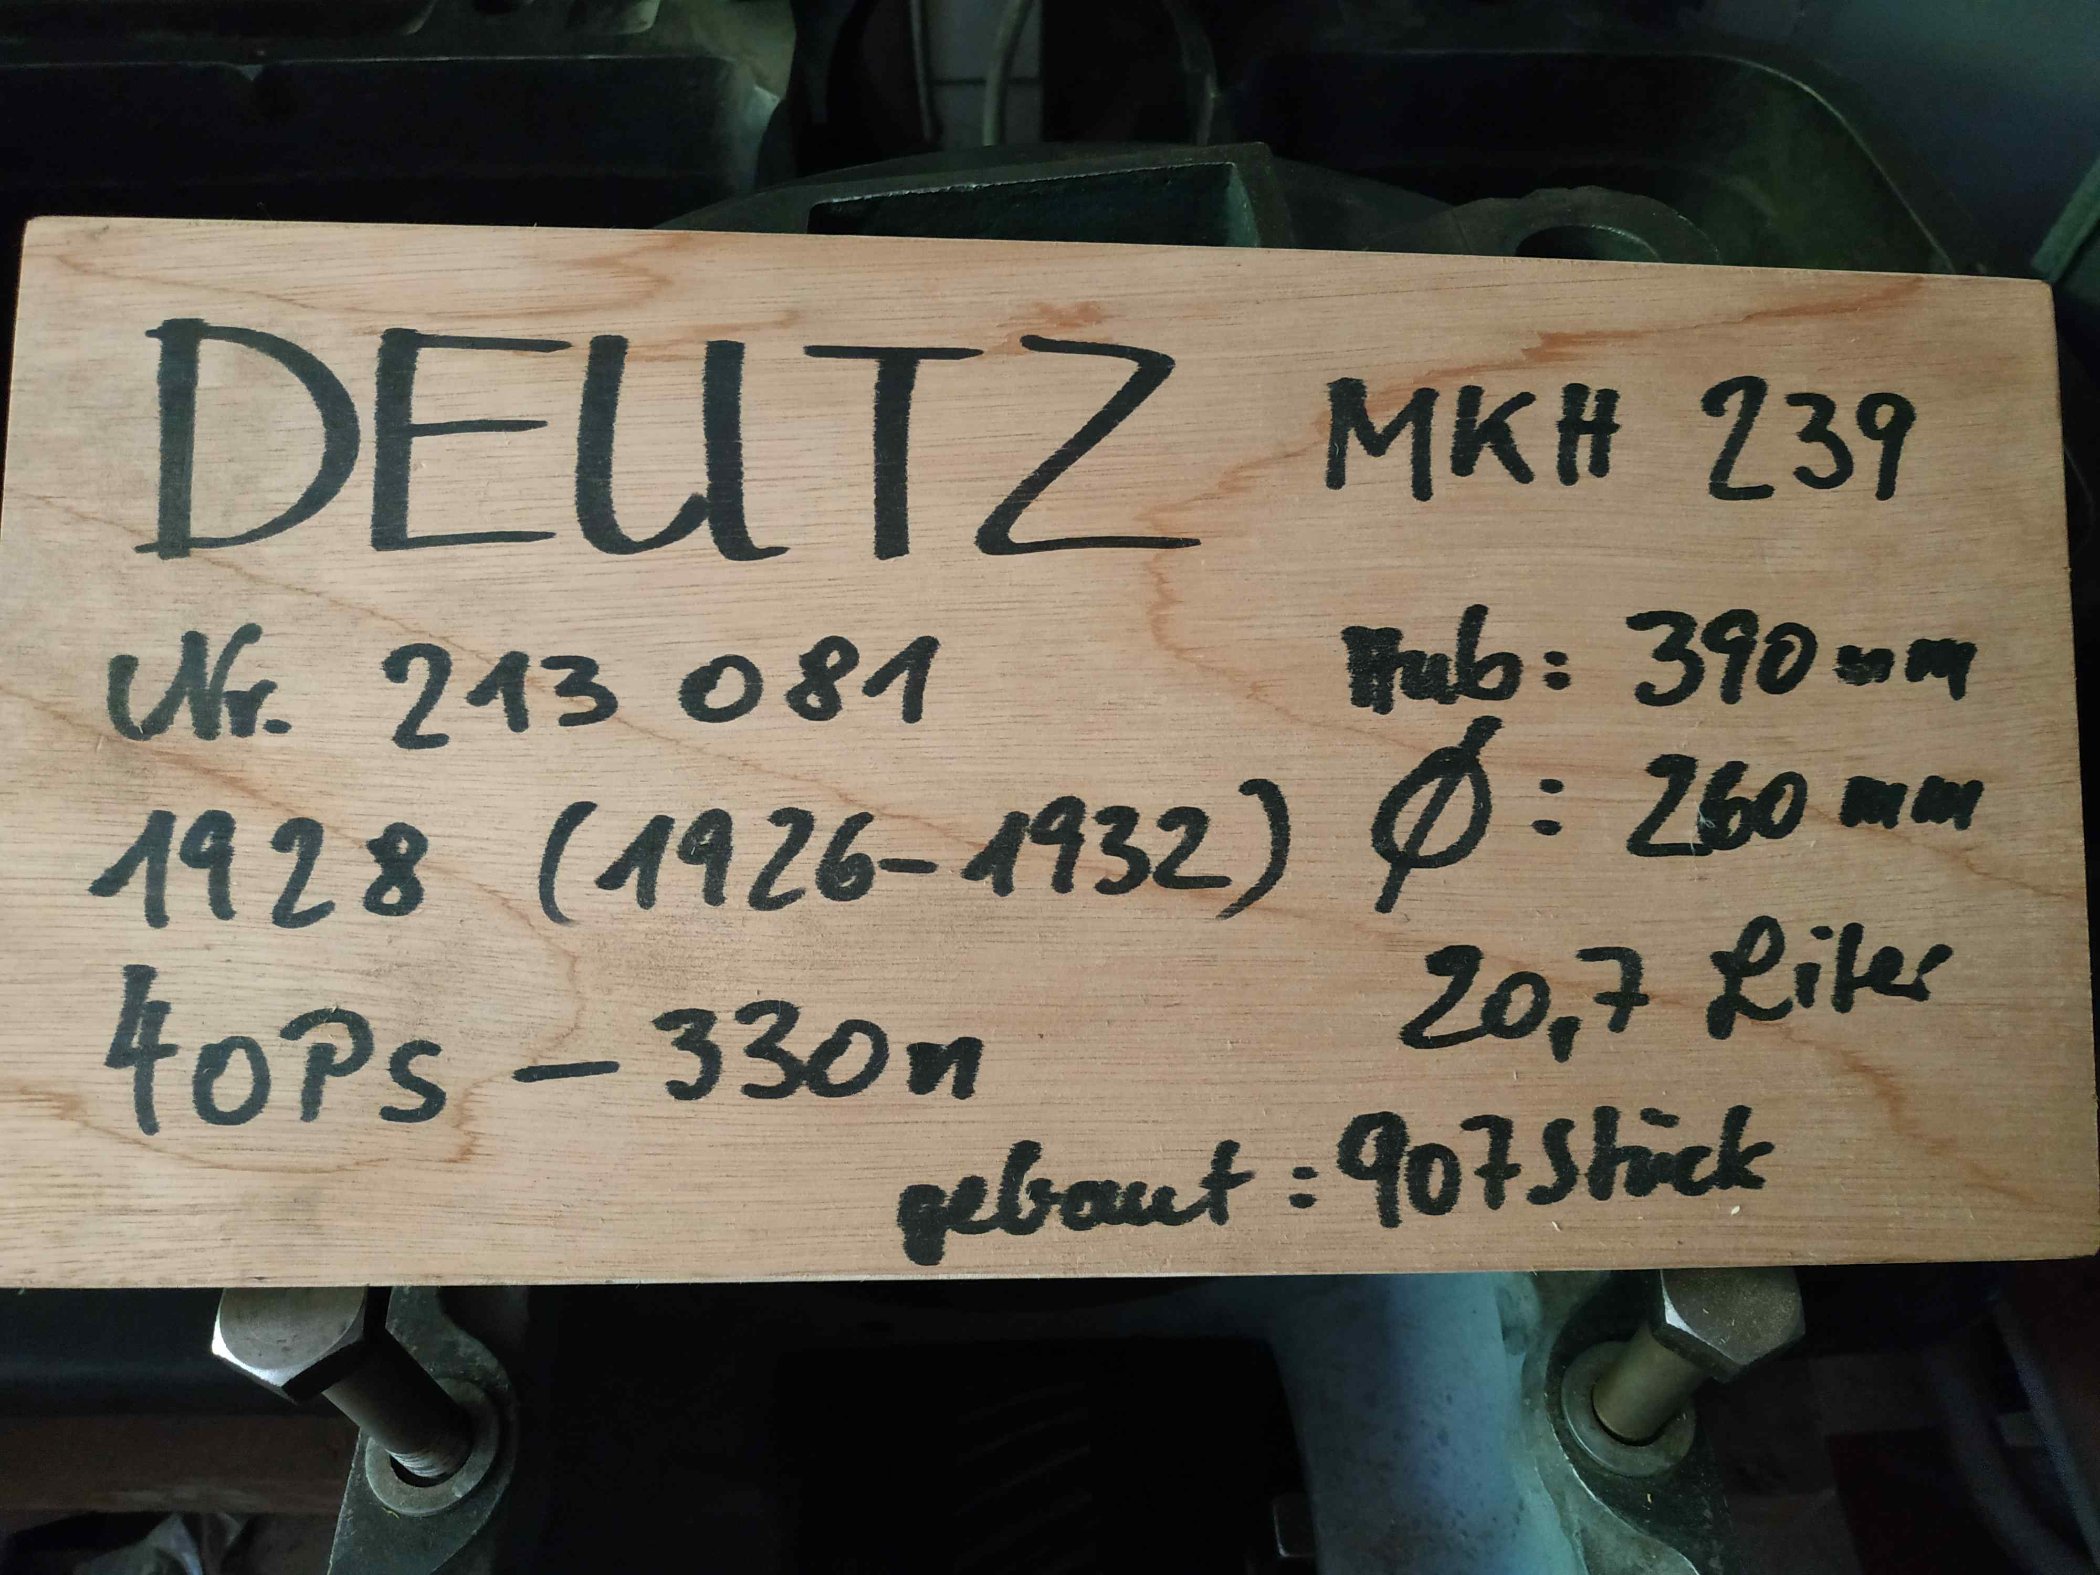 DEUTZ MKH 239
Nr. 213 081 Hub: 390 mm
1928 (1926-1932) Ø: 260 mm
20,7 Liter
40PS – 330n
gebaut: 907 Stück